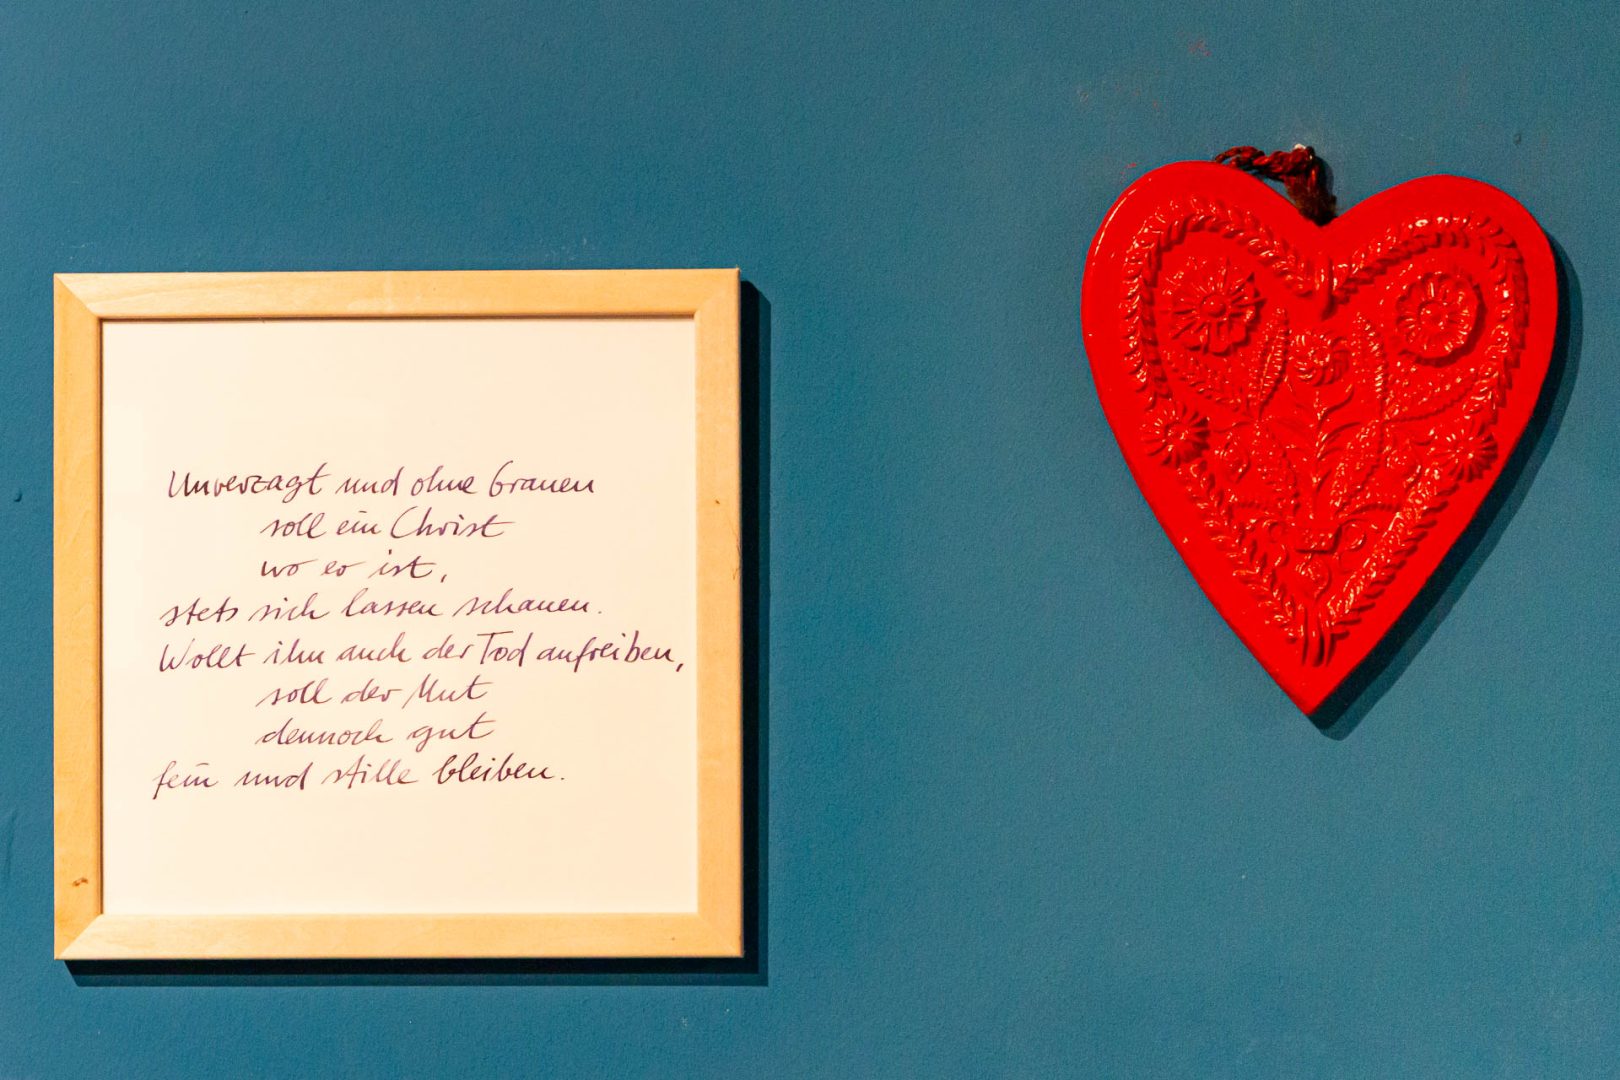 Unverzagt und ohne Grauen
soll ein Christ
wo er ist,
stets sich lassen schauen.
Wollt ihn auch der Tod aufreiben,
soll der Mut
dennoch gut
fein und stille bleiben.